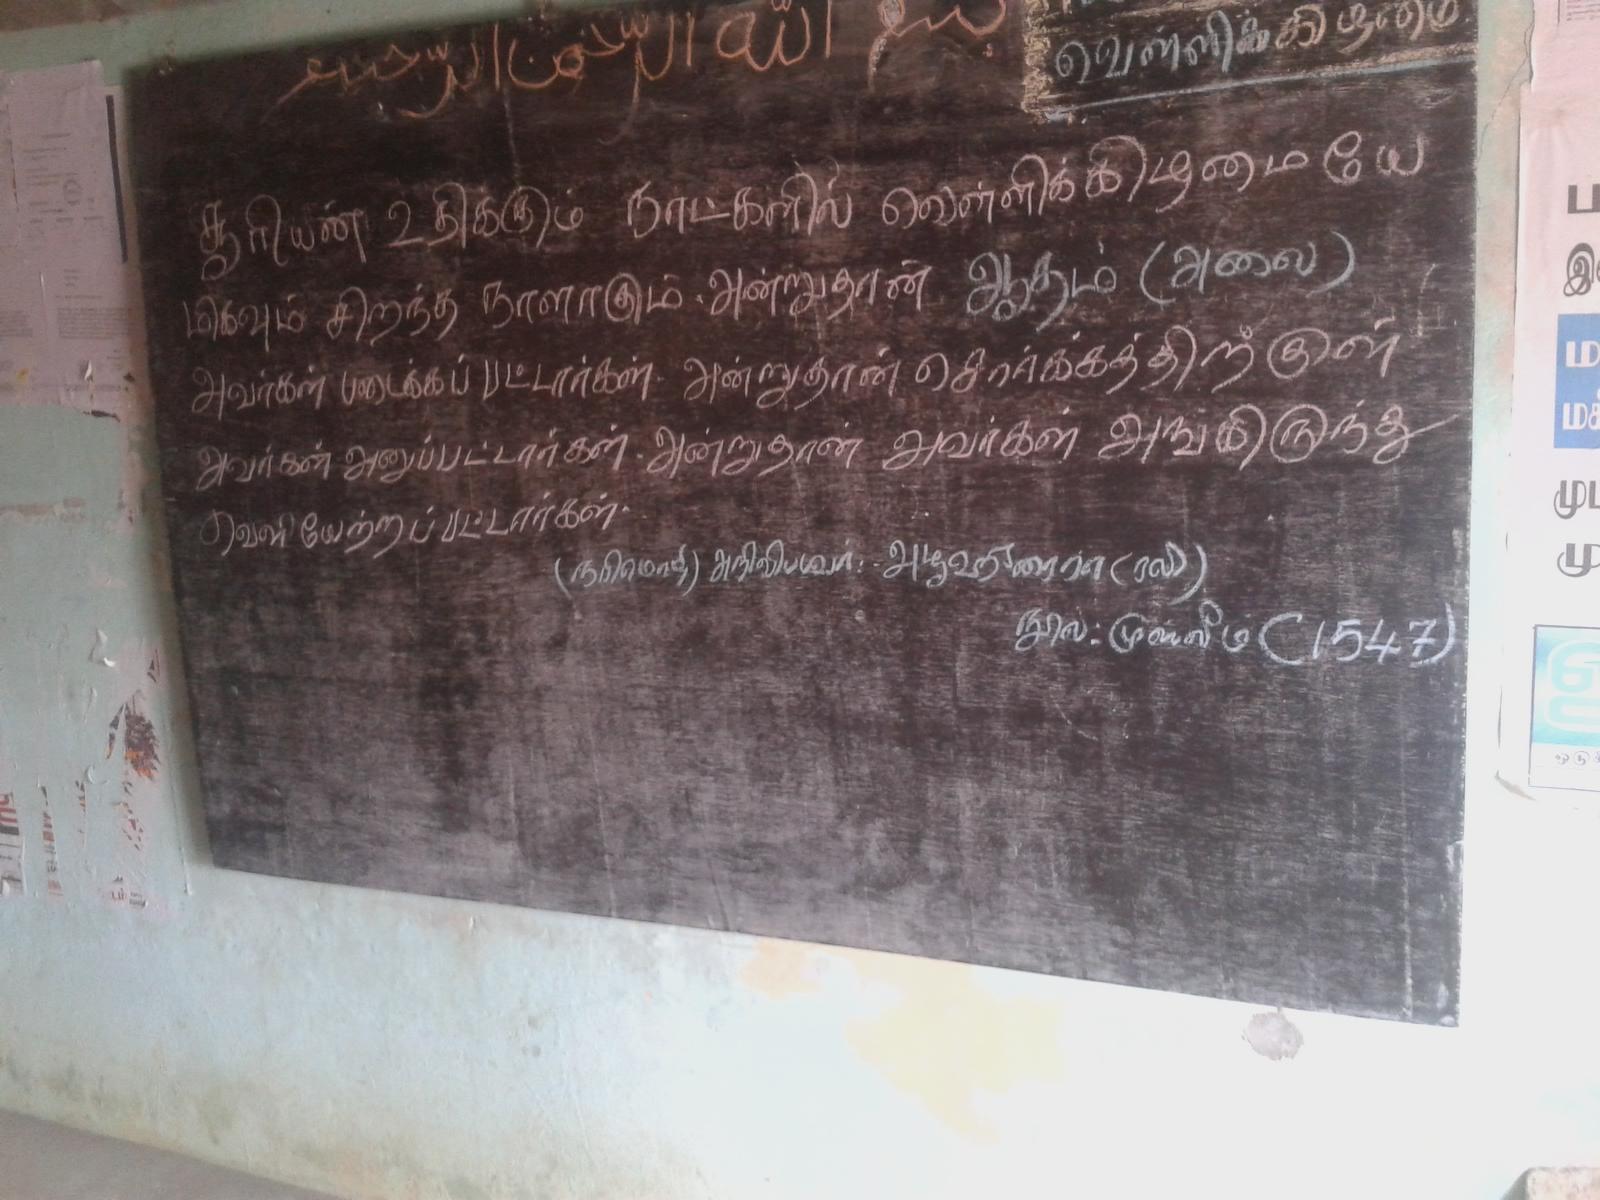 வெள்ளிக்கிழமை
சூரியண் உதிக்கும் நாட்களில் வெள்ளிக்கிழமையே
மிகவும் சிறந்த நாளாகும். அன்றுதான் ஆதம் (அலை)
அவர்கள் படைக்கப்பட்டார்கள். அன்றுதான் சொர்க்கத்திற்குள்
அவர்கள் அனுப்பட்டார்கள். அன்றுதான் அவர்கள் அங்கிருந்து
வெளியேற்றப்பட்டார்கள்.
(நபிமொழி) அறிவிப்பவர்: அபூஹுரைரா (ரலி)
நூல்: முஸ்லீம் (1547)